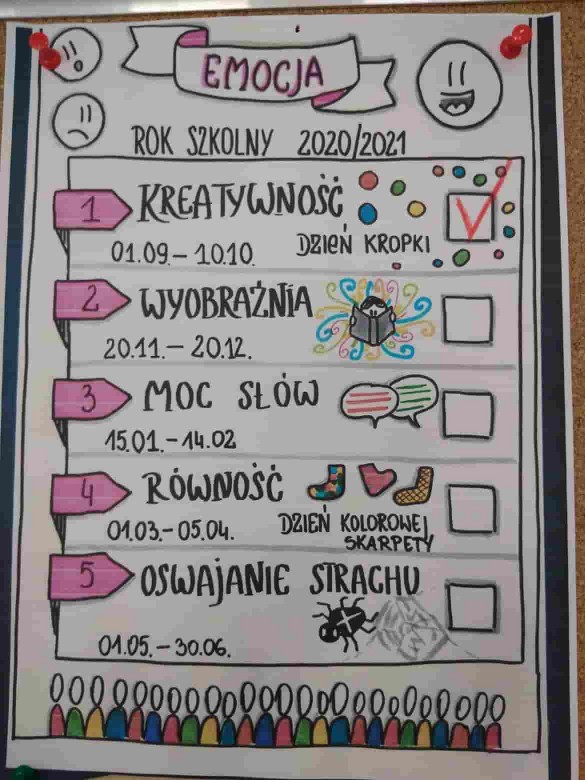 EMOCJA
ROK SZKOLNY 2020/2021
1 KREATYWNOŚĆ
01.09.- 10.10. DZIEŃ KROPKI
2 WYOBRAŹNIA
20.11.- 20.12.
3 MOC SŁÓW
15.01.-14.02
4 RÓWNOŚĆ
01.03.-05.04. DZIEŃ KOLOROWEJ
SKARPETY
5 OSWAJANIE STRACHU
01.05.-30.06.